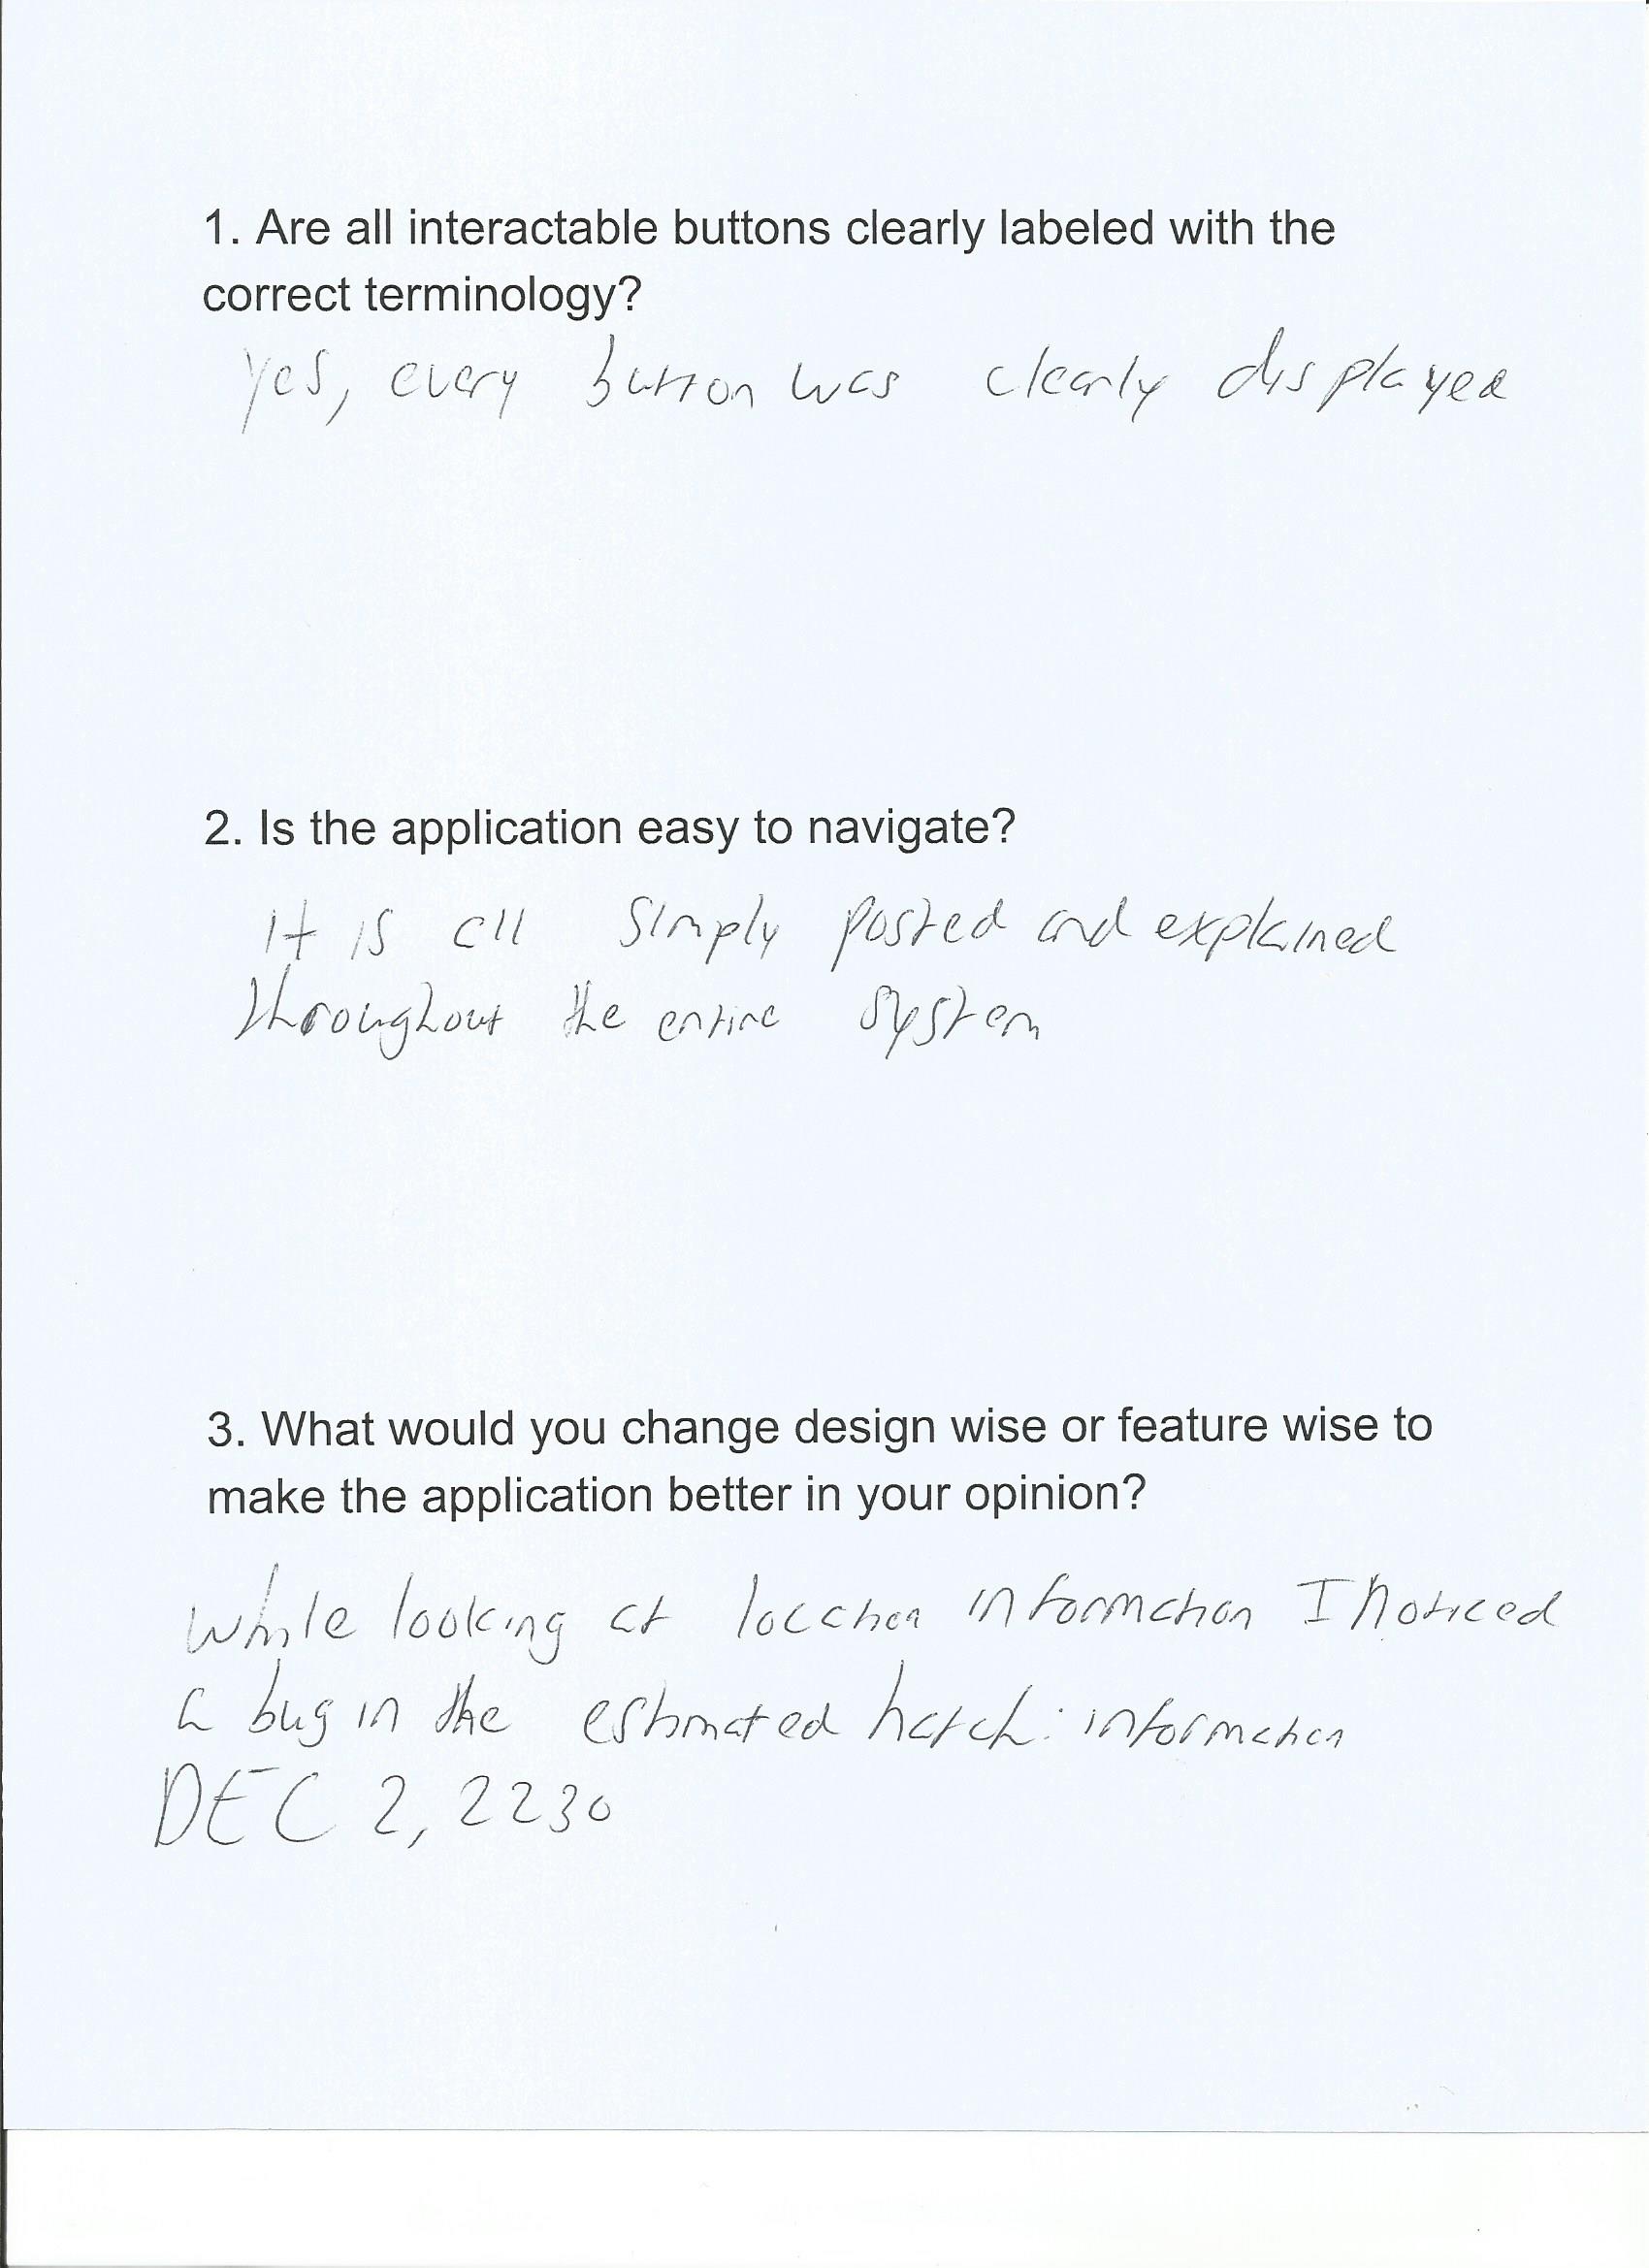 1. Are all interactable buttons clearly labeled with the
correct terminology?
Yes, every button was clearly displayed
2. Is the application easy to navigate?
It is all simply posted and explained
throughout the entire system
3. What would you change design wise or feature wise to
make the application better in your opinion?
While looking at location information I noticed
a bug in the estimated hatch: information
DEC 2, 2230